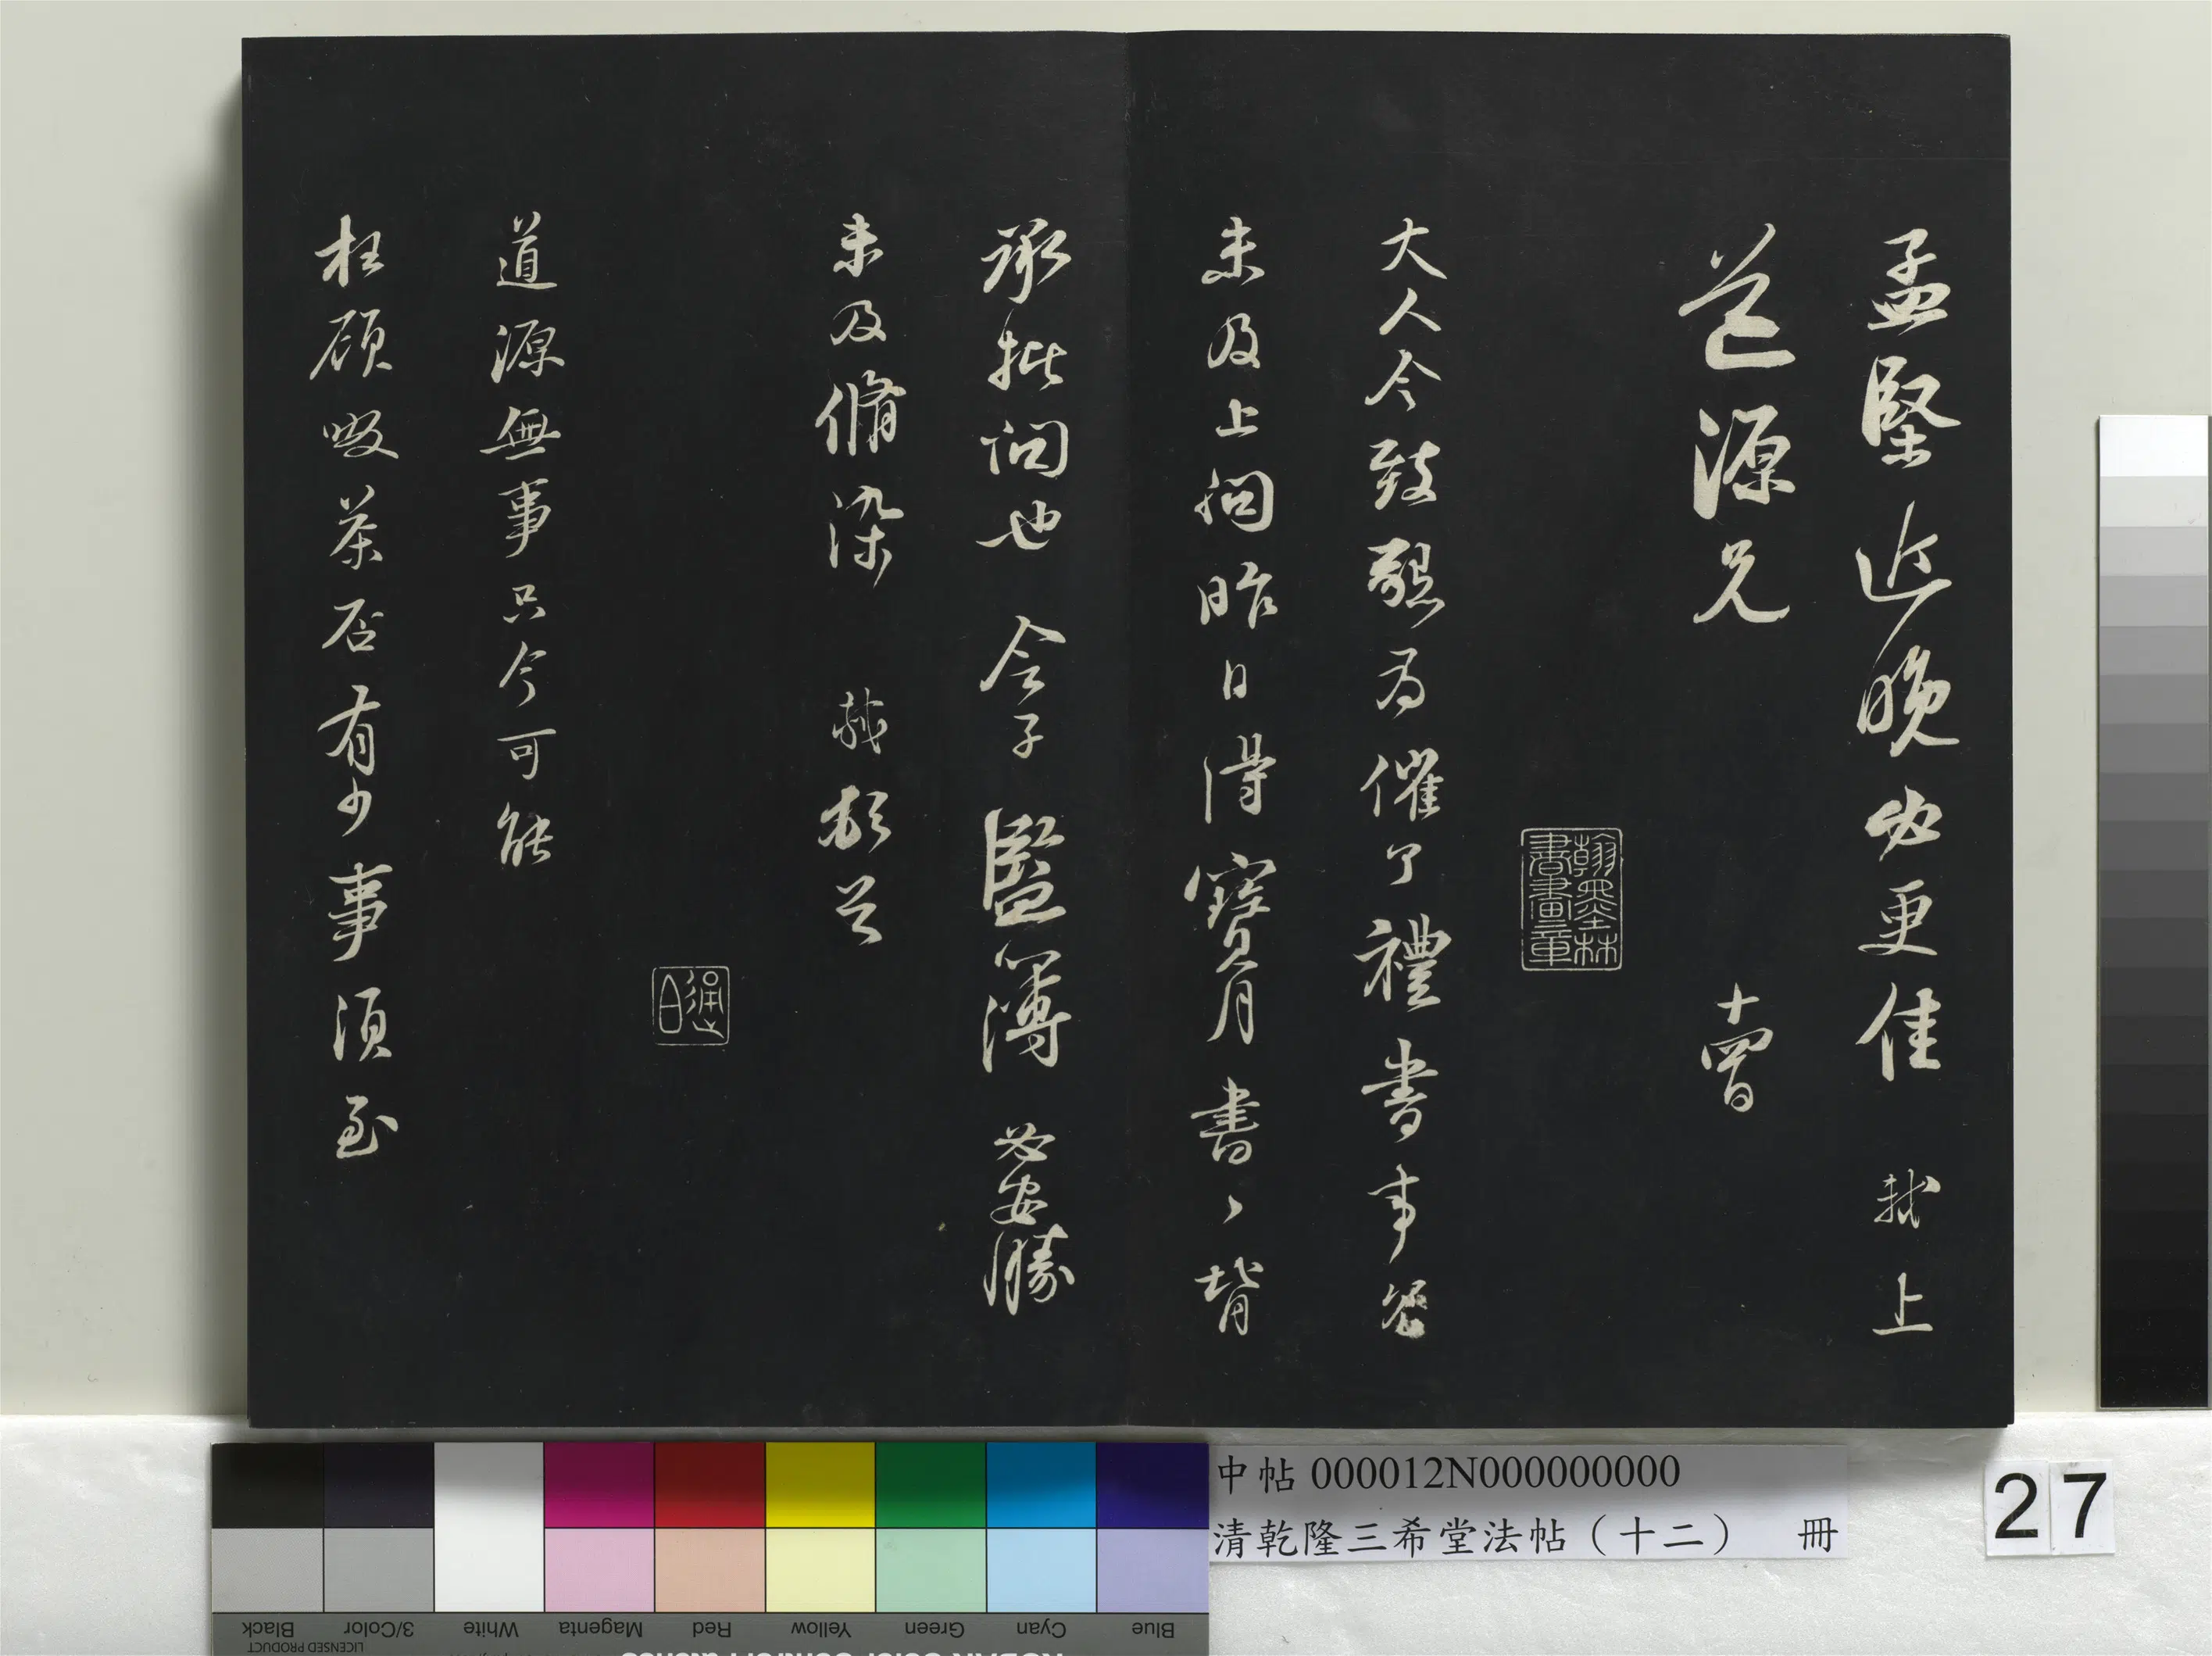 孟堅近晚必更佳 軾上
道源兄 十四日
翰墨林書畫章
大人令致懇為催了禮書事冗
未及上問昨日得寶月書書背
承批問也 令子監簿必安勝
未及脩染 軾頓首
道源無事只今可能
枉顧啜茶否有少事須至
中帖 000012N000000000
清乾隆三希堂法帖（十二） 冊
27
Blue
Cyan
Green
Yellow
Red
Magenta
White
3/Color
Black
LICENSED PRODUCT